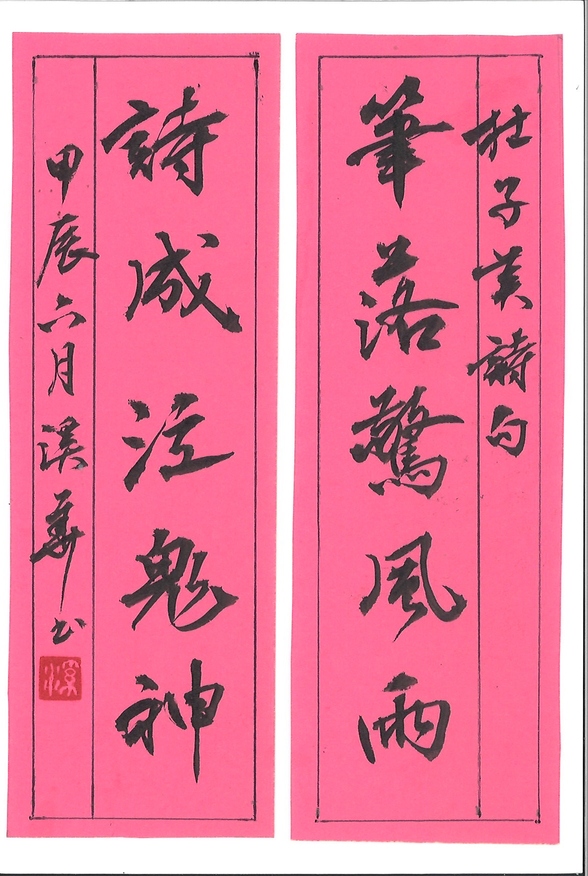 杜子美詩句
筆落驚風雨
詩成泣鬼神
甲辰六月溪華书
溪